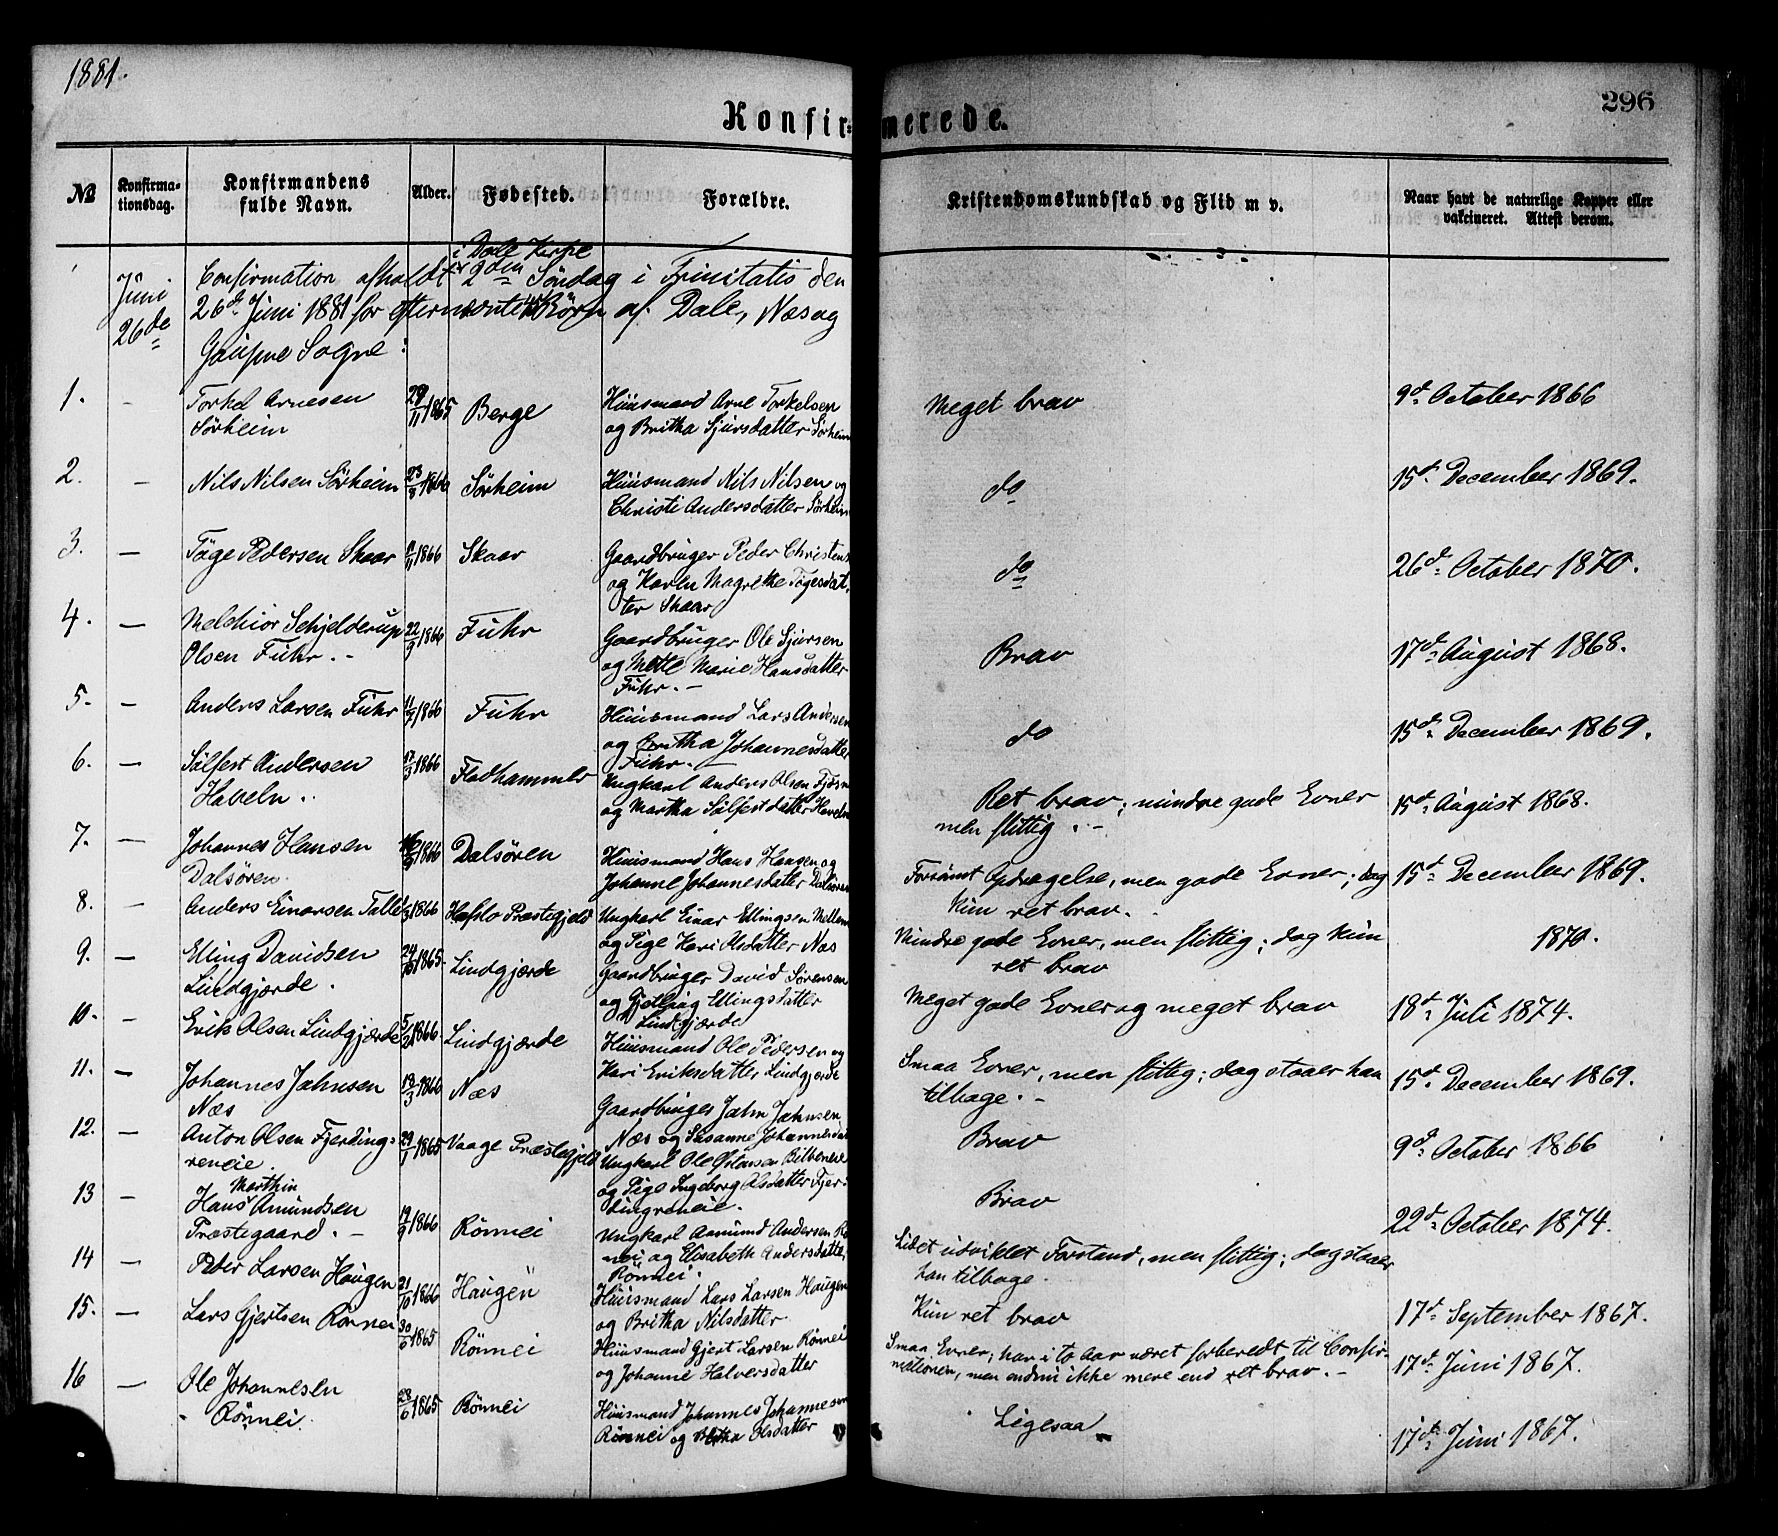 1881.
296
Konfir=merede.
No
Konfirma-
tionsdag.
Konfirmandens
fulde Navn.
Alder.
Fødested.
Forældre.
Kristendomskundskab og Flid m v.
Naar havt de naturlige Kopper eller
vakcineret. Attest derom.
i Dale Kirke
Juni 26de
Confirmation afholdt 2den Söndag i Trinitatis den
26de Juni 1881 for efternævnte Börn af Dale, Næs og
Gaupne Sogne:
1. - Torkel Arnesen
Sörheim
29/11 1865 Berge
Huusmand Arne Torkelsen
og Britha Sjursdatter Sörheim
Meget brav
9d October 1866
2. - Nils Nilsen Sörheim
1866 Sörheim
Huusmand Nils Nilsen og
Christi Andersdatter Sörheim
do
15d December 1869.
3. - Töge Pedersen Skaar
1866 Skaar
Gaardbruger Peder Christens
og Karen Magrethe Tögesdat-
ter Skaar
do
26d October 1870.
4. - Melchior Schjelderup
Olsen Fuhr. -
22/9 1866 Fuhr
Gaardbruger Ole Sjursen
og Mette Marie Hansdatter
Fuhr. -
Brav
17d August 1868.
5. - Anders Larsen Fuhr
1866 Fuhr
Huusmand Lars Andersen
og Britha Johannesdatter
Fuhr. -
do
15d December 1869.
6. - Sölfest Andersen
Haveln..
17/3 1866 Fladhammer
Ungkarl Anders Olsen
og Martha Sölfestdatter Haveln
Ret brav; mindre gode Evner
men flittig. -
15d August 1868.
7. - Johannes Hansen
Dalsören.
1866 Dalsören
Huusmand Hans Haagen og
Johanne Johannesdatter Dalsören
Forsömt Opdragelse, men gode Evner; dog
kun ret brav.
15d December 1869.
8. - Anders Einarsen
1866 Hafslo Præstegjeld
Ungkarl Einar Ellingsen
og Pige Kari Olsdatter Næs
Mindre gode Evner, men flittig; dog kun
ret brav
1870.
9. - Elling Davidsen
Lindgjærde.
24/10 1865. Lindgjærde
Gaardbruger David Sörensen
og Ellingsdatter
Lindgjærde
Meget gode Evner og meget brav
18d Juli 1874.
10. - Erik Olsen Lindgjærde
5/2 1866. Lindgjærde
Huusmand Ole Pedersen og
Kari Eriksdatter Lindgjærde
Smaa Evner, men flittig; dog staaer han
tilbage. -
15d December 1869.
11. - Johannes Jahnsen
Næs
13/3 1866 Næs
Gaardbruger Jahn Jahnsen
Næs og Susanne Johannesdat
Brav
9d October 1866
12. - Anton Olsen Fjerdings-
reneie.
29/1 1865 Vaage Præstegjeld
Ungkarl Ole
og Pige Ingeborg Olsdatter Fjer-
dingreneie.
Brav
22d October 1874.
13 - Hans Marthin Amundsen
Præstegaard. -
19/9 1866 Rönnei
Ungkarl Amund Andersen Rö
nei og Elisabeth Andersdatter
Rönnei.
Lidet udviklet Forstand, men flittig; dog staaer
han tilbage.
14 - Peder Larsen Haugen
21/10 1866 Haugen
Huusmand Lars Larsen Haugen
og Britha Nilsdatter
Kun ret brav
17d September 1867.
15. - Lars Gjertsen Rönnei
1865 Rönnei
Huusmand Gjert Larsen Rönnei
og Johanne Halversdatter
Smaa Evner; har i to Aar været forberedt til Confir-
mationen, men endnu ikke mere end ret brav. -
17d Juni 1867.
16 - Ole Johannesen
Rönnei.
1865 Rönnei
Huusmand Johannes Johannesen
Rönnei og Britha Olsdatter
Ligesaa
17d Juni 1867.